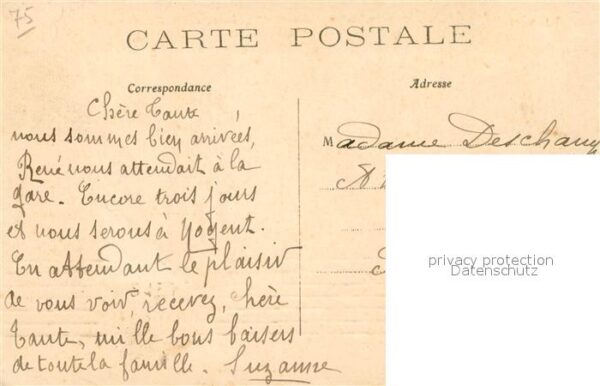 75
CARTE POSTALE
Correspondance
Adresse
Chère Tante,
nous sommes bien arrivés,
René nous attendait à la
gare. Encore trois jours
et nous serons à Nogent.
En attendant le plaisir
de vous voir, recevez, chère
Tante, mille bons baisers
de toute la famille. Suzanne
Madame Deschamp
A
privacy protection
Datenschutz